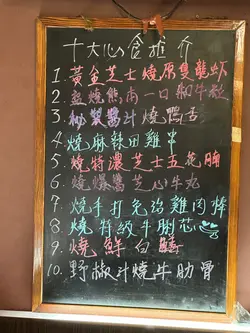 十大心食推介
1. 黃金芝士燒原隻龍蝦
2. 盐燒熊南一口和牛粒
3. 秘製醬汁燒鴨舌
4. 燒麻辣田雞串
5. 燒特濃芝士五花腩
6. 燒爆醬芝心牛丸
7. 燒手打免治雞肉棒
8. 燒特級牛脷芯
9. 燒鮮白鱔
10. 野椒汁燒牛肋骨